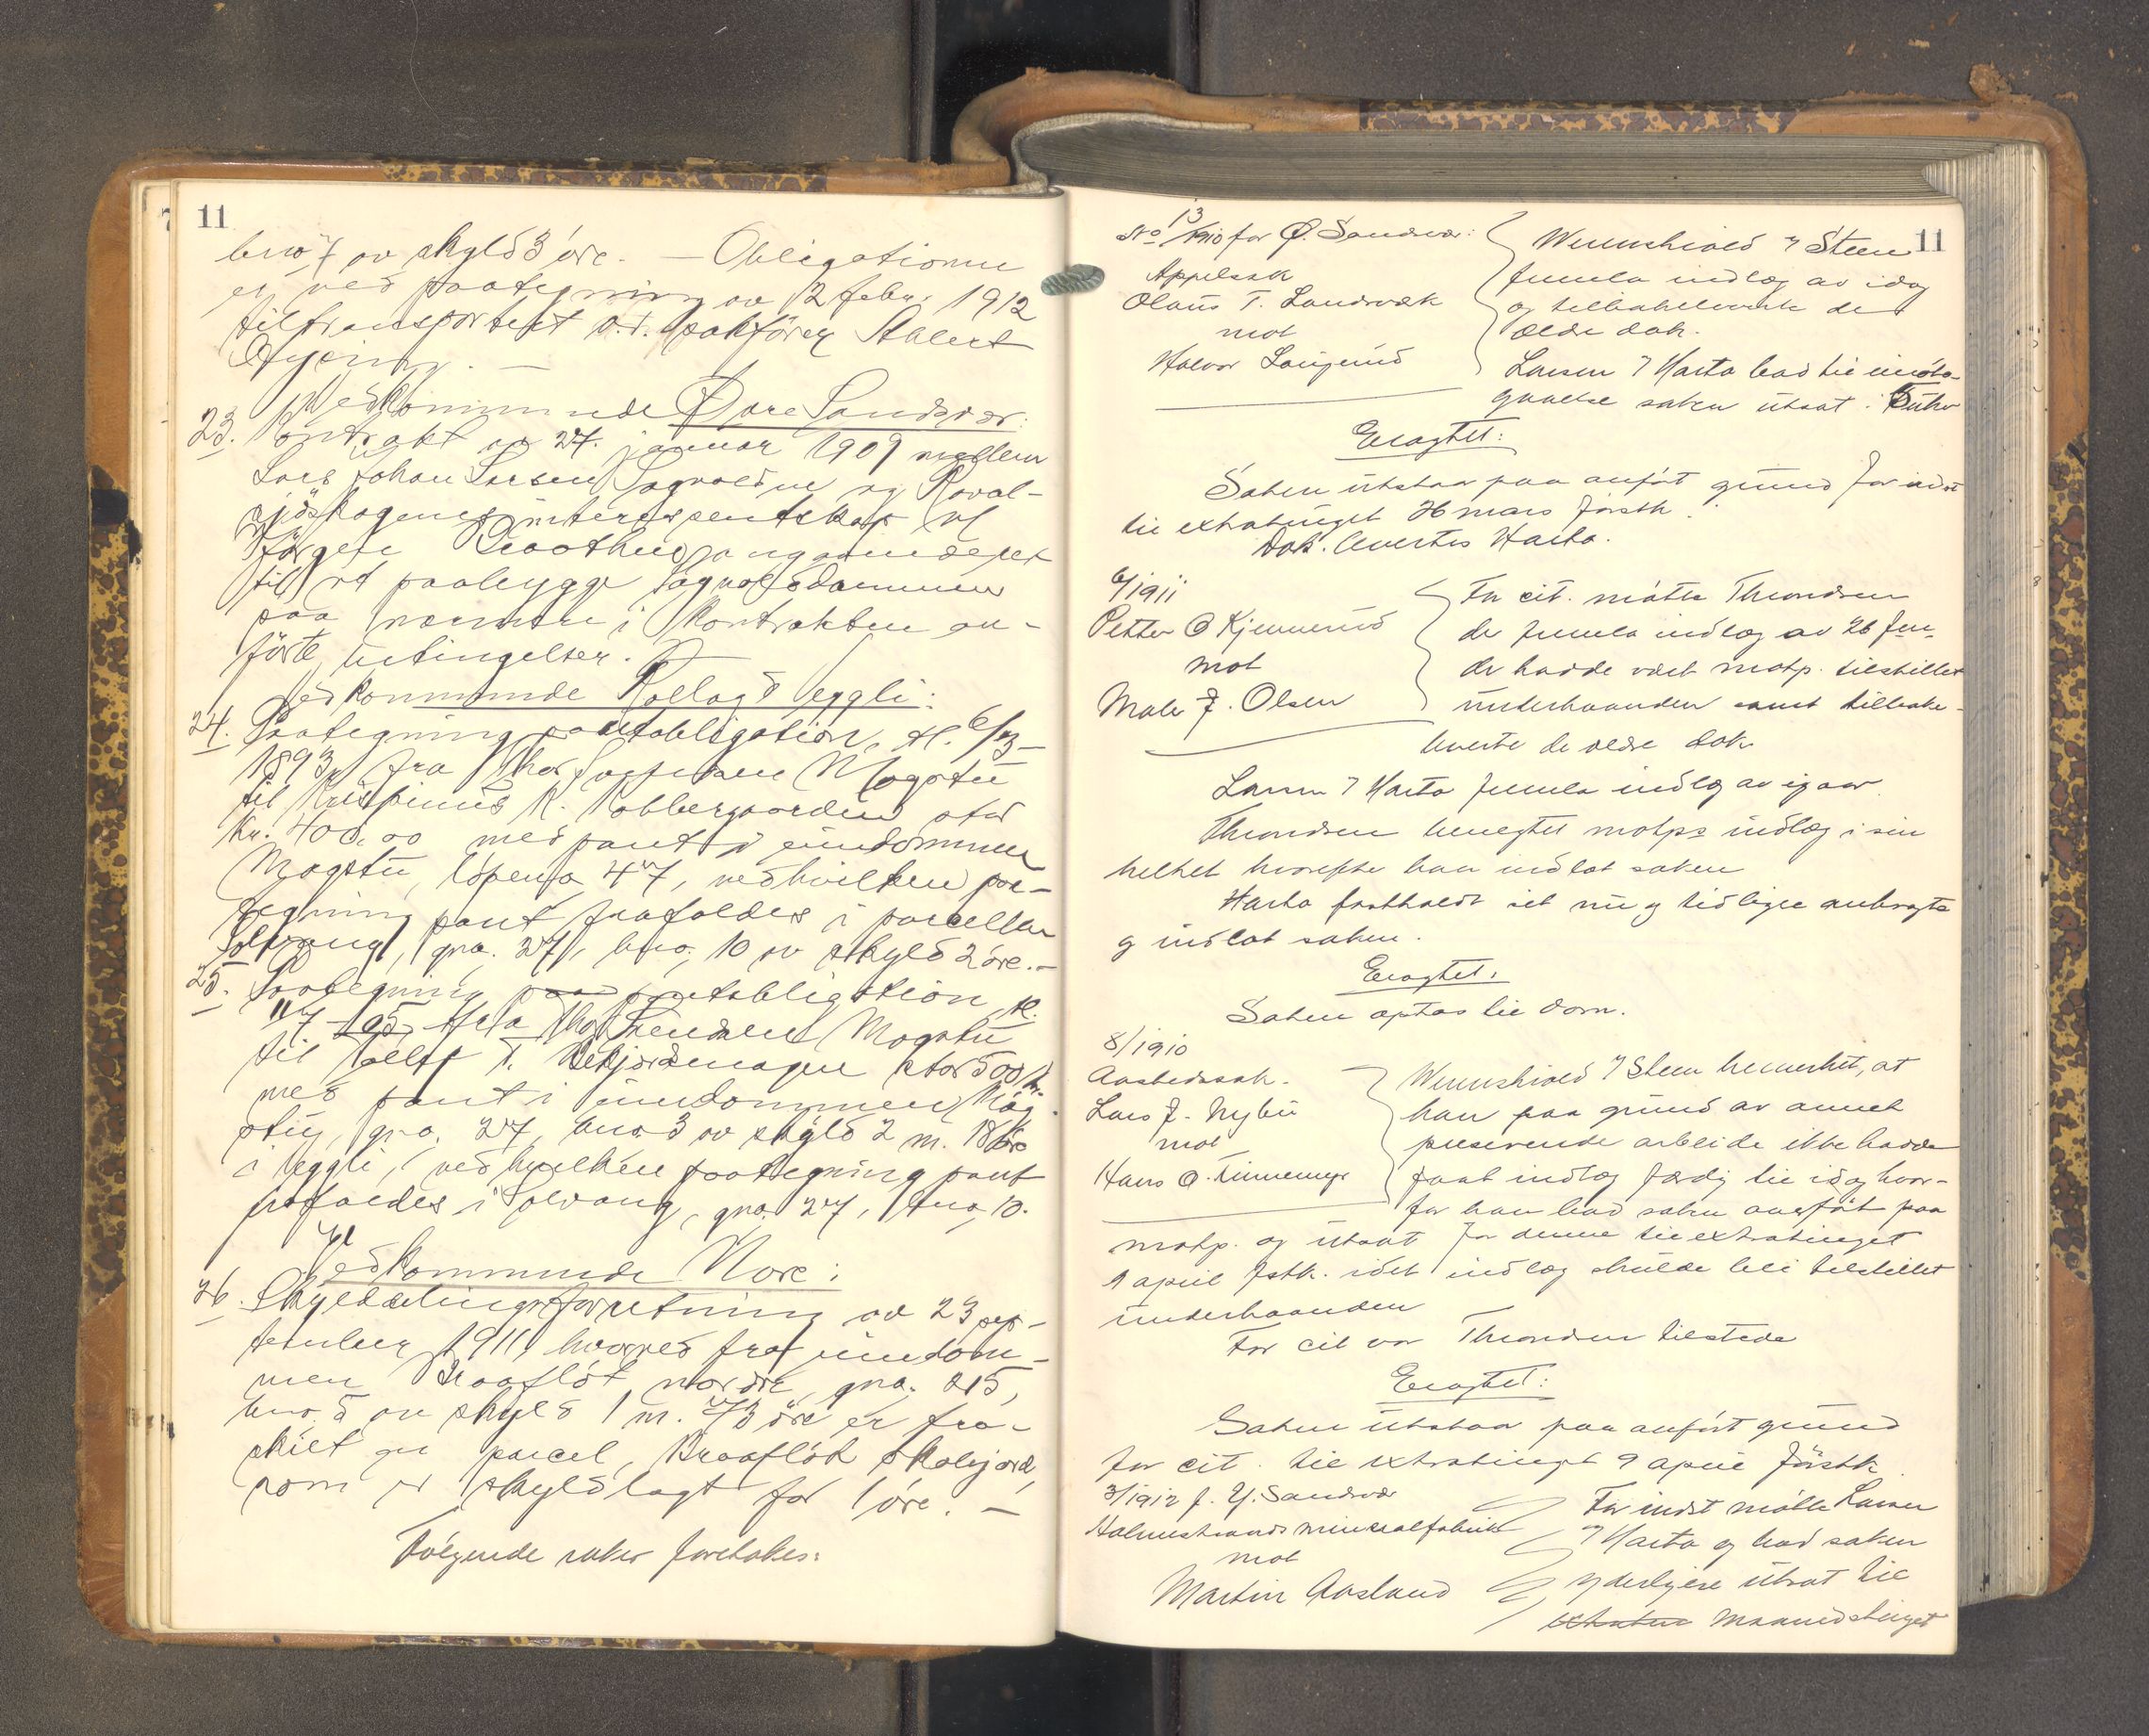 11
bno 7 av skyld 3 öre. — Obligationen
er ved paategning av 12 febr. 1912
tiltransportert o.r. sakförer Ahlert
Vedkommende Övre Sandsvær:
23. Kontrakt av 27. januar 1909 mellem
Lars Johan Larsen Sagvolden og Raval-
sjöskogenes interessentskap ved
Jörgen angaaende ret
til at paabygge Sagvolddammen
paa nærmere i kontrakten an-
förte betingelser. —
Vedkommende Rollag & Veggli:
24. Paategning pantobligation, tl. 6/3-
1893, fra Thor Mogstu
til Krispinus K. Kobbergaarden stor
kr. 400.00 med pant i eiendommen
Mogstu, löpenr. 47, ved hvilken paa-
tegning pant frafaldes i parcellen
Solvang, gno. 27, bno. 10 av skyld 2 öre. —
25. Paategning paa pantobligation, tl.
11/7-95, fra Thor Svendsen Mogstu
til T. stor 500 kr.
med pant i eiendommen Mog-
stu, gno. 27, bno. 3 av skyld 2 m. 18 öre
i Veggli, ved hvilken paategning pant
frafaldes i Solvang, gno. 27, bno. 10.
Vedkommende Nore:
26. Skylddelingsforretning av 23 sep-
tember 1911 hvorved fra eiendom-
men Braaflöt nordre, gno. 215,
bno. 5 av skyld 1 m. 73 öre er fra-
skilt en parcel, Braaflöt skolejord,
som er skyldlagt for 1 öre. —
Fölgende saker foretokes:
11
No 13/1910 for Ö. Sandsvær:
Appelsak
Olaus T. Landsverk
mot
Halvor Langerud
Wernskiold & Steen
fremla indlæg av idag
og tilbakeleverte de
ældre dok.
Larsen & Harto bad til imöte-
gaaelse saken utsat.
Eragtet:
Saken utstaar paa anfört grund for indst
til extratinget 26 mars förstk.
Dok. levertes Harto.
6/1911
Petter O Kjennerud
mot
Maler J. Olsen
For cit. mötte Throndsen
der fremla indlæg av 26 fen
der hadde vært motp. tilstillet
underhaanden samt tilbake-
leverte de ældre dok.
Larsen & Harto fremla indlæg av igaar.
Throndsen benegtet motps indlæg i sin
helhet hvorefter han indlot saken
Harto fastholdt sit nu og tidligere anbragte
og indlot saken.
Eragtet:
Saken optas til dom.
8/1910
Aastedssak.
Lars J. Nybu
mot
Hans O. Tinnemyr
Wernskiold & Steen bemerket, at
han paa grund av annet
presserende arbeide ikke hadde
faat indlæg færdig til idag hvor-
for han bad saken overfört paa
motp. og utsat for denne til extratinget
9 april fstk. idet indlæg skulde bli tilstillet
underhaanden
For cit var Throndsen tilstede
Eragtet:
Saken utstaar paa anfört grund
for cit. til extratinget 9 april förstk.
3/1912 f. Y. Sandsvær
Holmestrands mineralfabrik
mot
Martin Aasland
For indst mötte Larsen
& Harto og bad saken
yderligere utsat til
maanedstinget